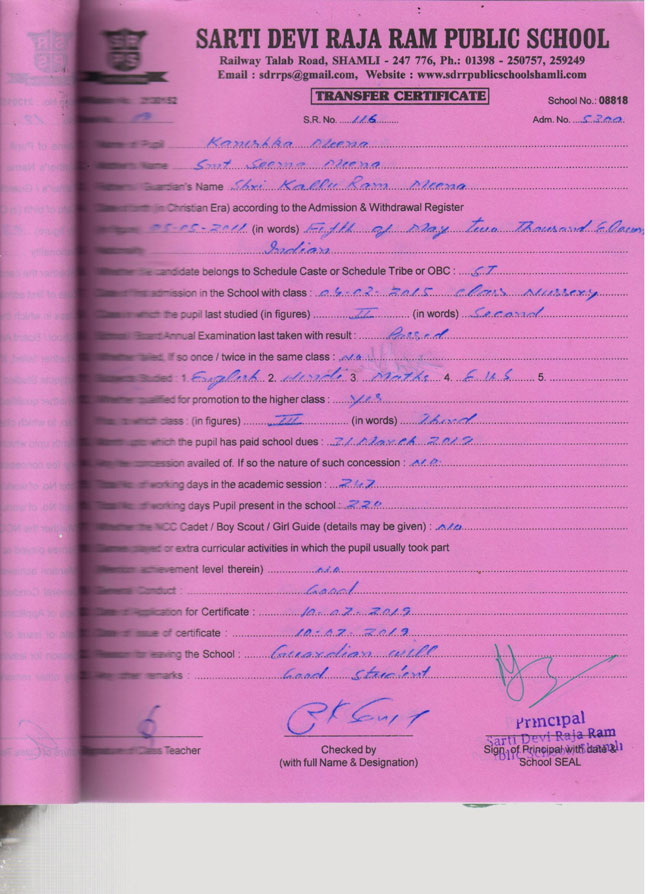 SARTI DEVI RAJA RAM PUBLIC SCHOOL
Railway Talab Road, SHAMLI - 247 776, Ph.: 01398 - 250757, 259249
Email : sdrrps@gmail.com, Website : www.sdrrpublicschoolshamli.com
SRRPS
TRANSFER CERTIFICATE
No. : 2130152 School No.: 08818
S.R. No. 116 Adm. No. 5300
Name of Pupil Kanishka Meena
Mother's Name Smt Seema Meena
Father's / Guardian's Name Shri Kallu Ram Meena
(in Christian Era) according to the Admission & Withdrawal Register
05-05-2011 (in words) Fifth of May two Thousand
Nationality Indian
Whether the candidate belongs to Schedule Caste or Schedule Tribe or OBC : ST
Date of first admission in the School with class : 04-02-2015 Class Nursery
Class in which the pupil last studied (in figures) II (in words) Second
School / Board Annual Examination last taken with result : Passed
Whether failed, If so once / twice in the same class : No
Subjects Studied : 1. English 2. Hindi 3. Maths 4. E.V.S 5.
Whether qualified for promotion to the higher class : Yes
If so, to which class : (in figures) III (in words) Third
Month upto which the pupil has paid school dues : 31 March 2019
Any fee concession availed of. If so the nature of such concession : No
Total No. of working days in the academic session : 247
Total No. of working days Pupil present in the school : 220
Whether the NCC Cadet / Boy Scout / Girl Guide (details may be given) : No
Games played or extra curricular activities in which the pupil usually took part
(Mention achievement level therein) No
General Conduct : Good
Date of Application for Certificate : 10-07-2019
Date of Issue of certificate : 10-07-2019
Reason for leaving the School : Guardian will
Any other remarks : Good Student
Principal
Sarti Devi Raja Ram
Public School, Shamli
Signature of Class Teacher Checked by Sign. of Principal with date &
(with full Name & Designation) School SEAL